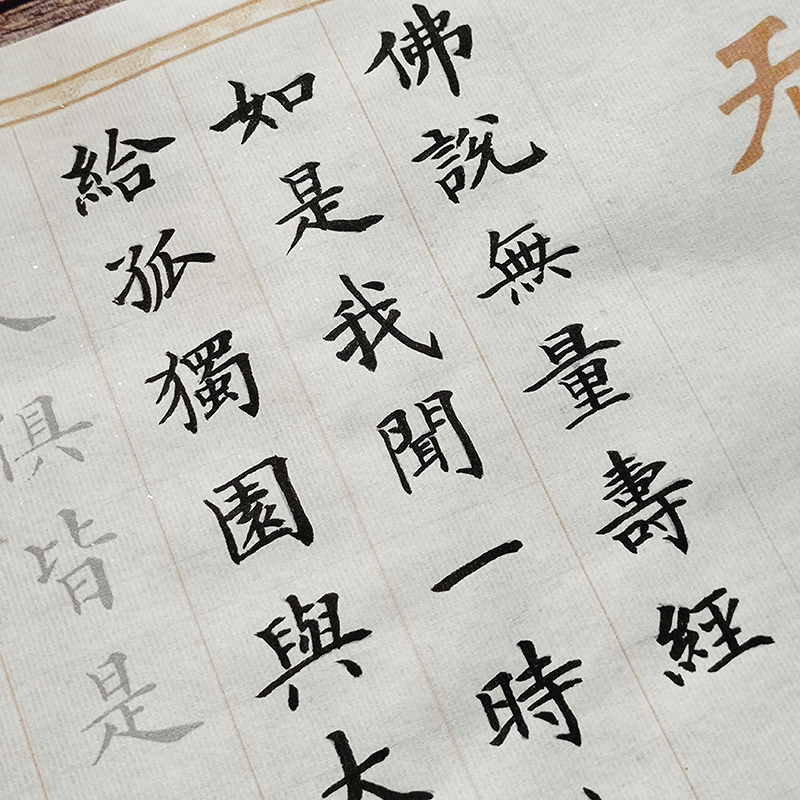 佛說無量壽經
如是我聞一時
給孤獨園與大
俱皆是